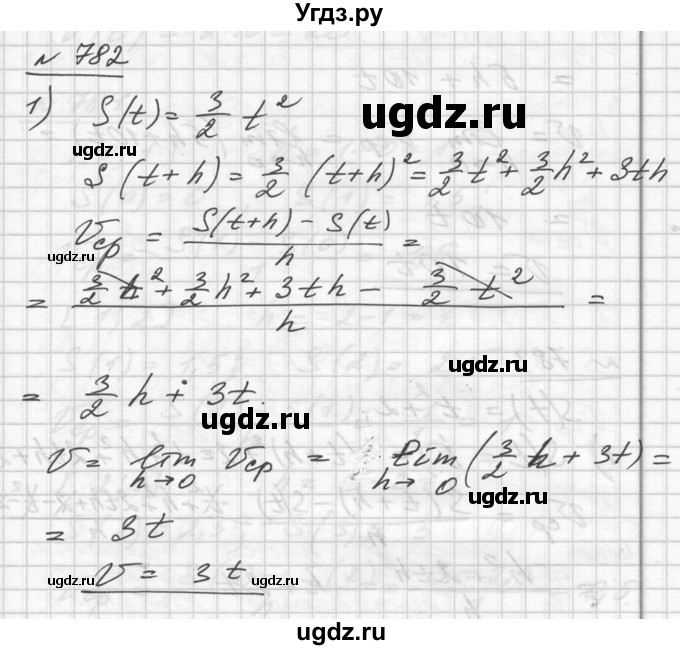 Угдз.ру
№ 782
1) S(t) = 3/2 t²
ugdz.ru
ugdz.ru
S(t+h) = 3/2 (t+h)² = 3/2 t² + 3/2 h² + 3th
Vср = (S(t+h) − S(t))/h =
ugdz.ru
= (3/2 t² + 3/2 h² + 3th − 3/2 t²)/h =
ugdz.ru
= 3/2 h + 3t.
ugdz.ru
V = lim h→0 Vср = lim h→0 (3/2 h + 3t) =
= 3t
ugdz.ru V = 3t ugdz.ru
ugdz.ru